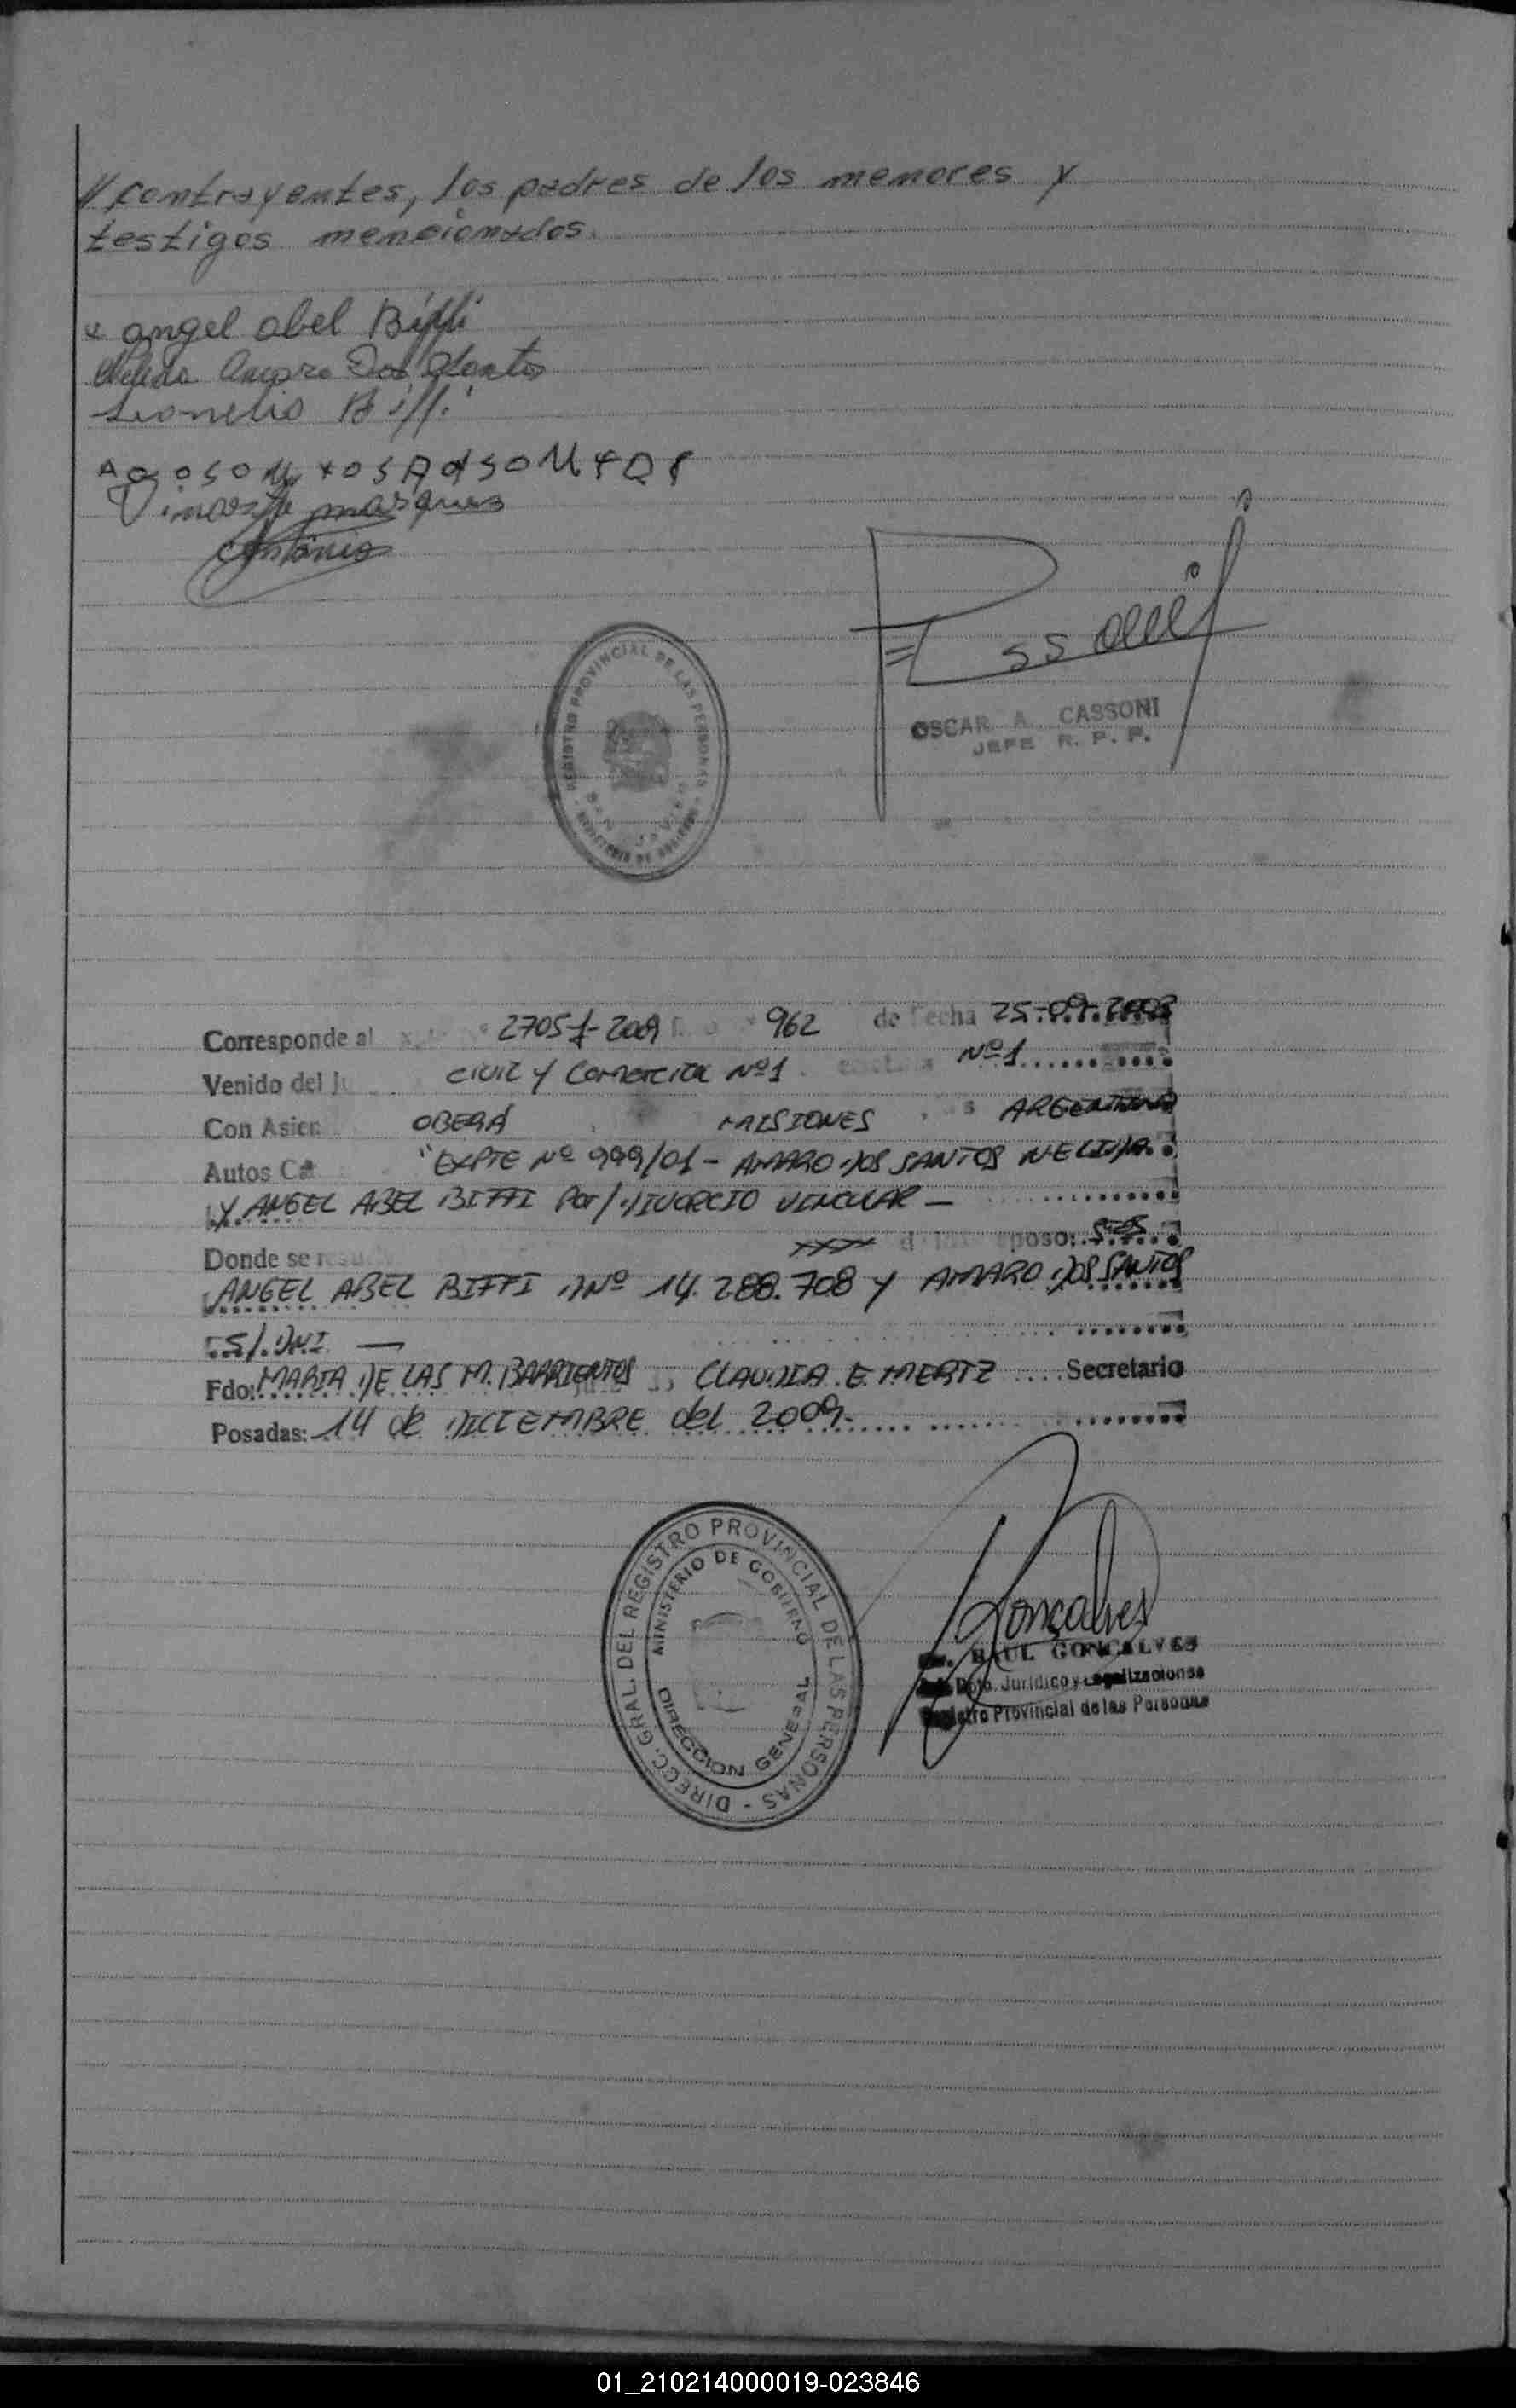 // contrayentes, los padres de los menores y
testigos mencionados.
angel abel Biffi
Amaro Dos Santos
Leonelio Biffi
marques
Antonio
REGISTRO PROVINCIAL DE LAS PERSONAS
OSCAR A. CASSONI
JEFE R. P. P.
Corresponde al 27051-2009 962 de fecha 25-09-2003
Venido del CIVIL Y COMERCIAL Nº1 Nº1
Con Asien OBERÁ MISIONES ARGENTINA
Autos Ca "EXPTE Nº 999/01 - AMARO DOS SANTOS NELIDA
Y ANGEL ABEL BIFFI POR/ DIVORCIO VINCULAR —
Donde se resu xxxx d posos: SRES
ANGEL ABEL BIFFI DNº 14.288.708 Y AMARO DOS SANTOS
S/. DNI —
Fdo: MARIA DE LAS M. BARRIENTOS CLAUDIA E. MERTZ Secretario
Posadas: 14 de DICIEMBRE del 2009.
DIRECC. GRAL. DEL REGISTRO PROVINCIAL DE LAS PERSONAS -
MINISTERIO DE GOBIERNO
DIRECCION GENERAL
Gonçalves
RAUL GONCALVES
Dpto. Jurídico y Legalizaciones
Registro Provincial de las Personas
01_210214000019-023846